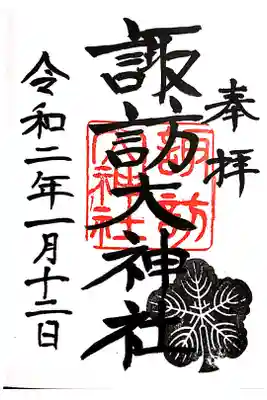 奉拝
諏訪大神社
諏訪
大神社
令和二年一月十二日